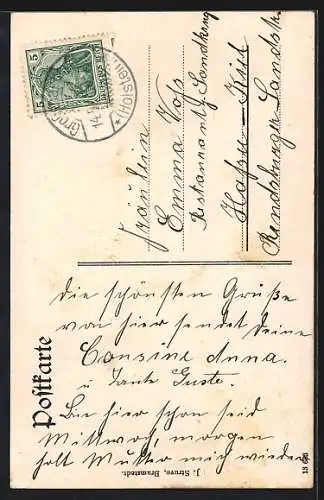 Postkarte
Fräulein
Emma Voss
Restaurant z. Sandkrug
Hassee-Kiel
Rendsburger Landstr.
Die schönsten Grüße
von hier sendet Deine
Cousine Anna.
u. Tante Guste.
Bin hier schon seid
Mittwoch, morgen
holt Mutter mich wieder
J. Struve, Bramstedt.
5
5
(Holstein)
14.9